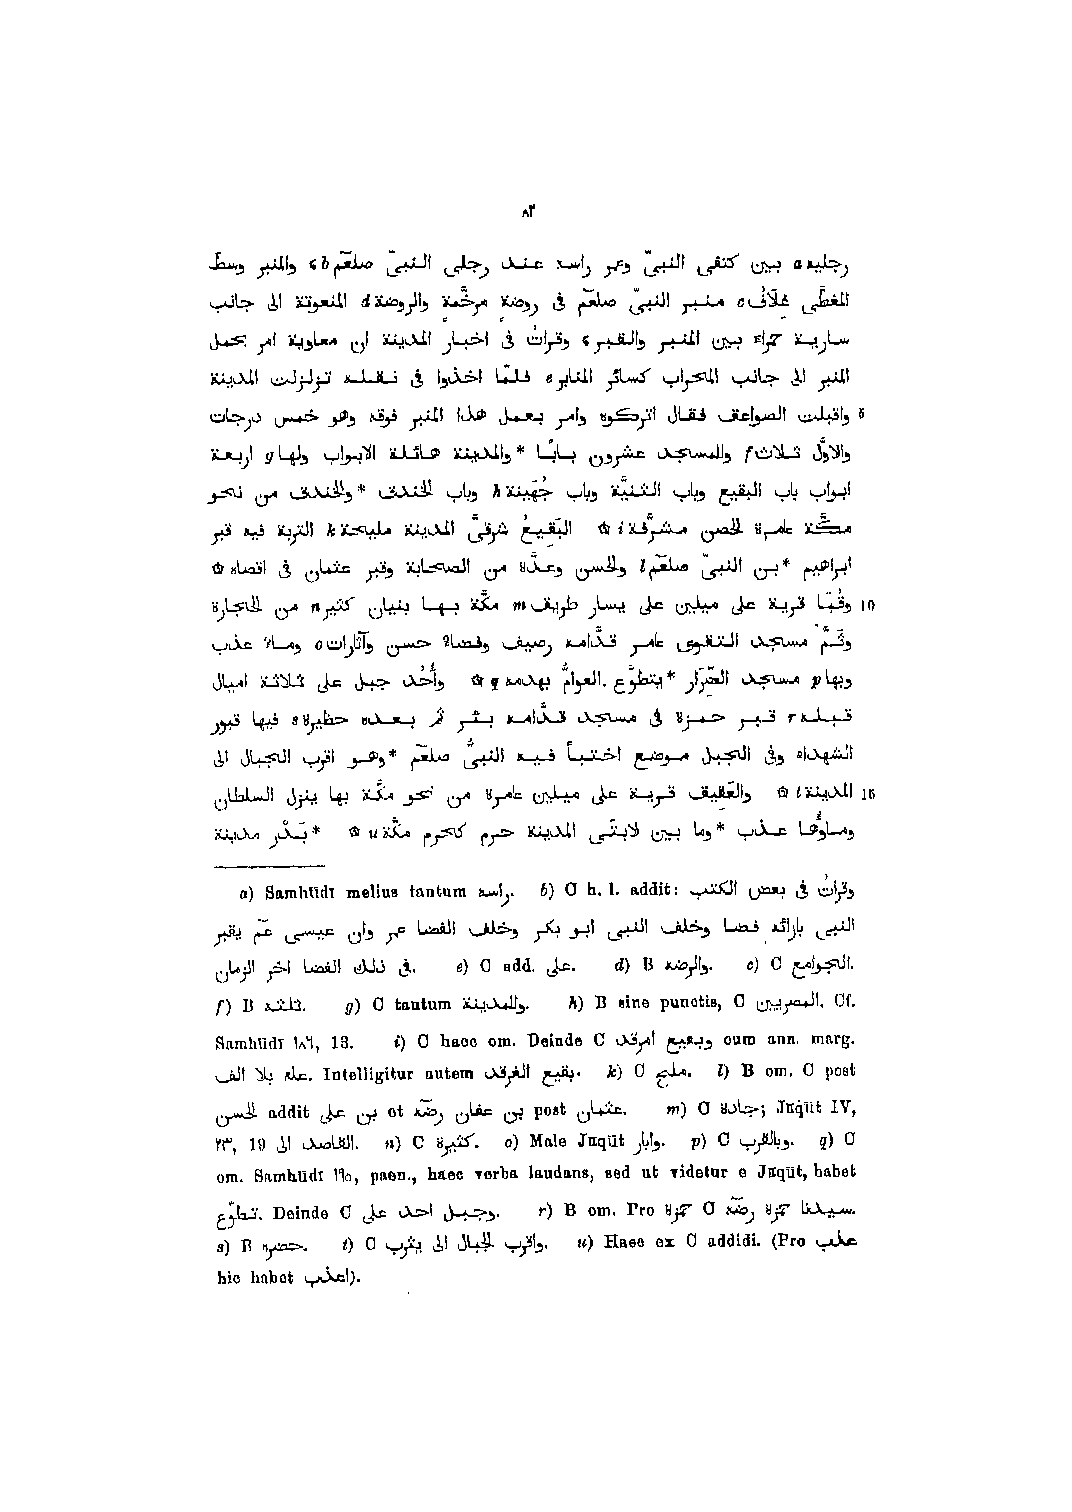 ٨٢
رجليه a بين كتفى النبىّ وعمر راسه عند رجلى النبىّ صلعّم b ۵ والمنبر وسط
المغطّى بملافّ c منبر النبىّ صلعّم فى روضة مرخّمة والروضة d المنعوتة الى جانب
سارية حمراء بين المنبر والقبر ۵ وقراتُ فى اخبار المدينة ان معاوية امر بحمل
المنبر الى جانب المحراب كسائر المنابر e فلمّا اخذوا فى نقله تزلزلت المدينة
5 واقبلت الصواعق فقال اتركوه وامر بعمل هذا المنبر فوقه وهو خمس درجات
والاوّل ثلاث f والمسجد عشرون بابًا * والمدينة هائلة الابواب ولها g اربعة
ابواب باب البقيع وباب الثنيّة وباب جُهَينة h وباب الخندق * والخندق من نحو
مكّة عامرة الحصن مشرّفة i ۵ البَقيعُ شرقىَّ المدينة مليحة k التربة فيه قبر
ابراهيم * بن النبىّ صلعّم l والحسن وعدّة من الصحابة وقبر عثمان فى اقصاه ۵
10 وقُبَا قرية على ميلين على يسار طريق m مكّة بها بنيان كثير n من الحجارة
وثَمَّ مسجد التقوى عامر قدّامه رصيف وفضاء حسن وآثارات o وماء عذب
وبها p مسجد الضّرار * يتطوّع العوامّ بهدمه q ۵ وأُحُد جبل على ثلاثة اميال
قبله r قبر حمزة فى مسجد قدّامه بئر ثم بعده حظيرة s فيها قبور
الشهداء وفى الجبل موضع اختبأ فيه النبىّ صلعّم * وهو اقرب الجبال الى
15 المدينة t ۵ والعَقيق قرية على ميلين عامرة من نحو مكّة بها ينزل السلطان
وماؤها عذب * وما بين لابتَى المدينة حرم كحرم مكّة u ۵ * بَدْر مدينة
a) Samhūdī melius tantum راسه. b) C h. l. addit: وقراتُ فى بعض الكتب
النبى بازائه فضا وخلف النبى ابو بكر وخلف الفضا عمر وان عيسى عم يقبر
فى ذلك الفضا اخر الزمان. c) C add. على. d) B والرضه. e) C الجوامع.
f) B ثلثه. g) C tantum وللمدينة. h) B sine punctis, C المصريين. Cf.
Samhūdī ١٨٦, 13. i) C haec om. Deinde C وبقيع امرقد cum ann. marg.
عله بلا الف. Intelligitur autem بقيع الغرقد. k) C ملح. l) B om. C post
الحسن addit بن على et بن عفان رضّه post عثمان. m) C جادة; Jāqūt IV,
٢٣, 19 القاصد الى. n) C كثيرة. o) Male Jāqūt وابار. p) C وبالقرب. q) C
om. Samhūdī ١٩٥, paen., haec verba laudans, sed ut videtur e Jāqūt, habet
تطوّع. Deinde C وجبل احد على. r) B om. Pro حمزة C سيدنا حمزة رضّه.
s) B حضره. t) C واقرب الجبال الى يثرب. u) Haec ex C addidi. (Pro عذب
hic habet اعذب).